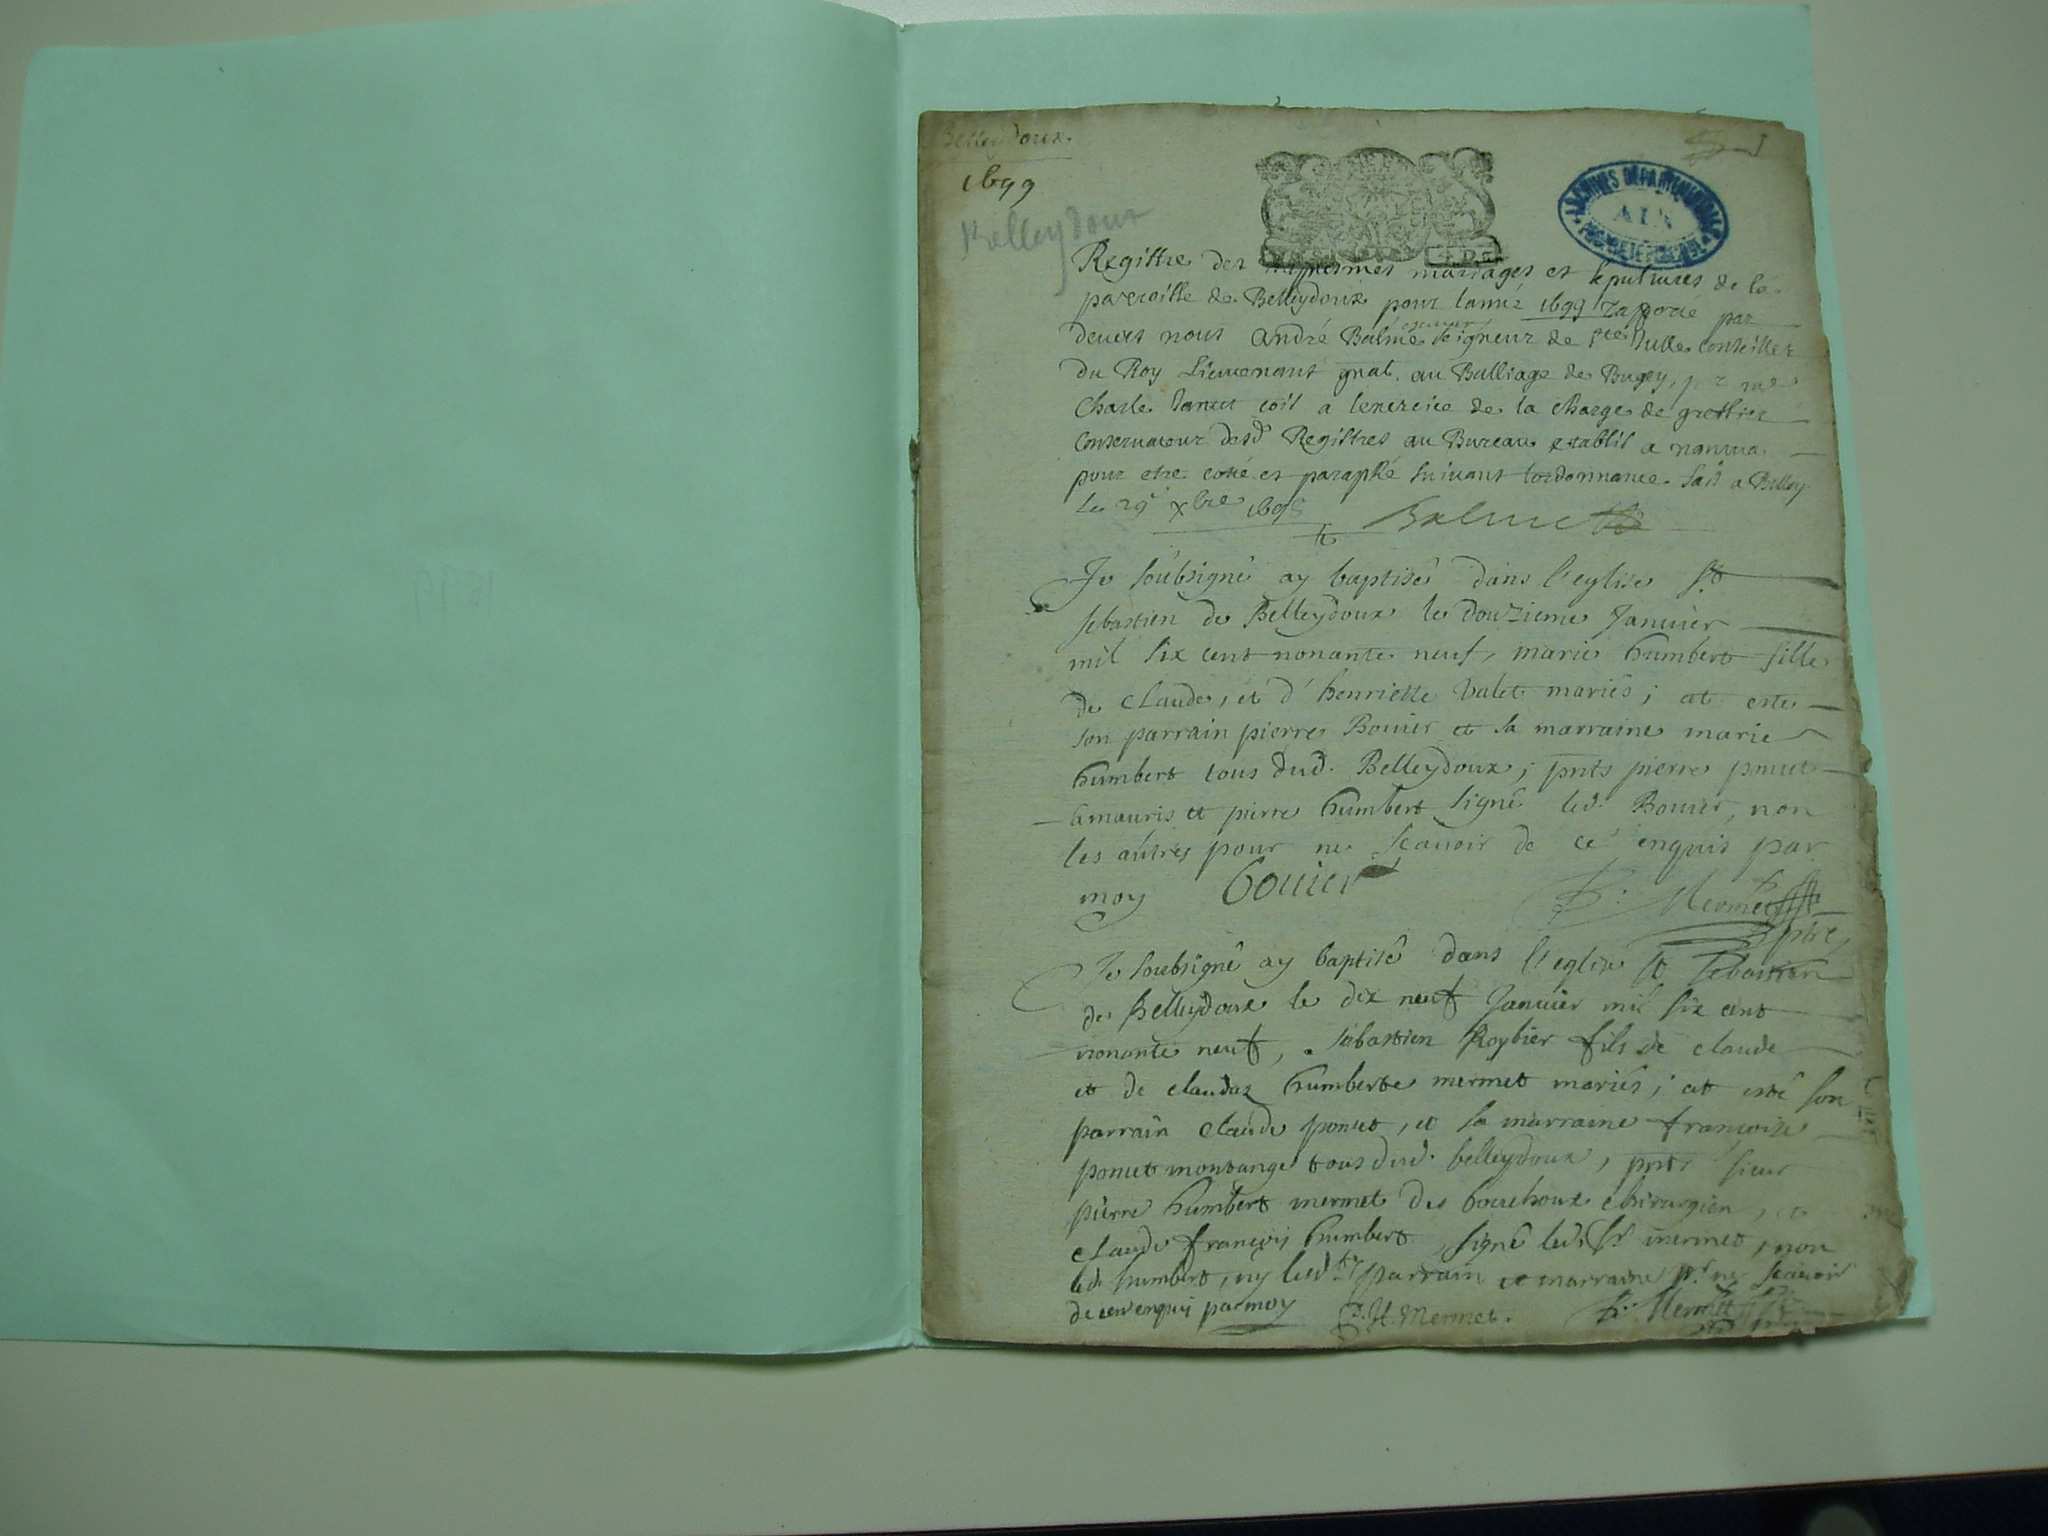 Belleydoux.
1699
Belleydoux
ARCHIVES DÉPARTEMENTALES
AIN
PROPRIÉTÉ PUBLIQUE
Registre des baptesmes mariages et sepultures de la
parroisse de Belleydoux pour lannée 1699 rapporté par
devant nous André Balme escuier seigneur de Ste Julle conseiller
du Roy Lieutenant gnal. au Balliage de Bugey, par me
Charle Janet a lexercice de la charge de greffier
conservateur desd Registres au Bureau establit a nantua
pour etre cotté et paraphé suivant lordonnance. fait a Belley
le 29e xbre 1698
Balme
Je soubsigné ay baptisé dans l'eglise St
sebastien de Belleydoux le douzieme Januier
mil six cent nonante neuf, marie humbert fille
de Claude, et d'henriette Valet mariés; at esté
son parrain pierre Bouier et sa marraine marie
humbert tous dud. Belleydoux; pnts pierre poncet
amauris et pierre humbert signé led. Bouier, non
les autres pour ne scauoir de ce enquis par
moy bouier
Mermet
ptre
Je soubsigné ay baptisé dans l'eglise st sebastien
de Belleydoux le dix neuf Januier mil six cent
nonante neuf, sebastien Roybier fils de claude
et de claudaz humberte mermet mariés; at esté son
parrain claude poncet, et sa marraine francoise
poncet montange tous dud. belleydoux, pnts sieur
pierre humbert mermet des bouchoux chirurgien, et
claude françois humbert, signé led. Sr mermet, non
led. humbert, ny lesdts parrain et marraine pr ne scauoir
de ce enquis par moy P. H. Mermet. Mermet